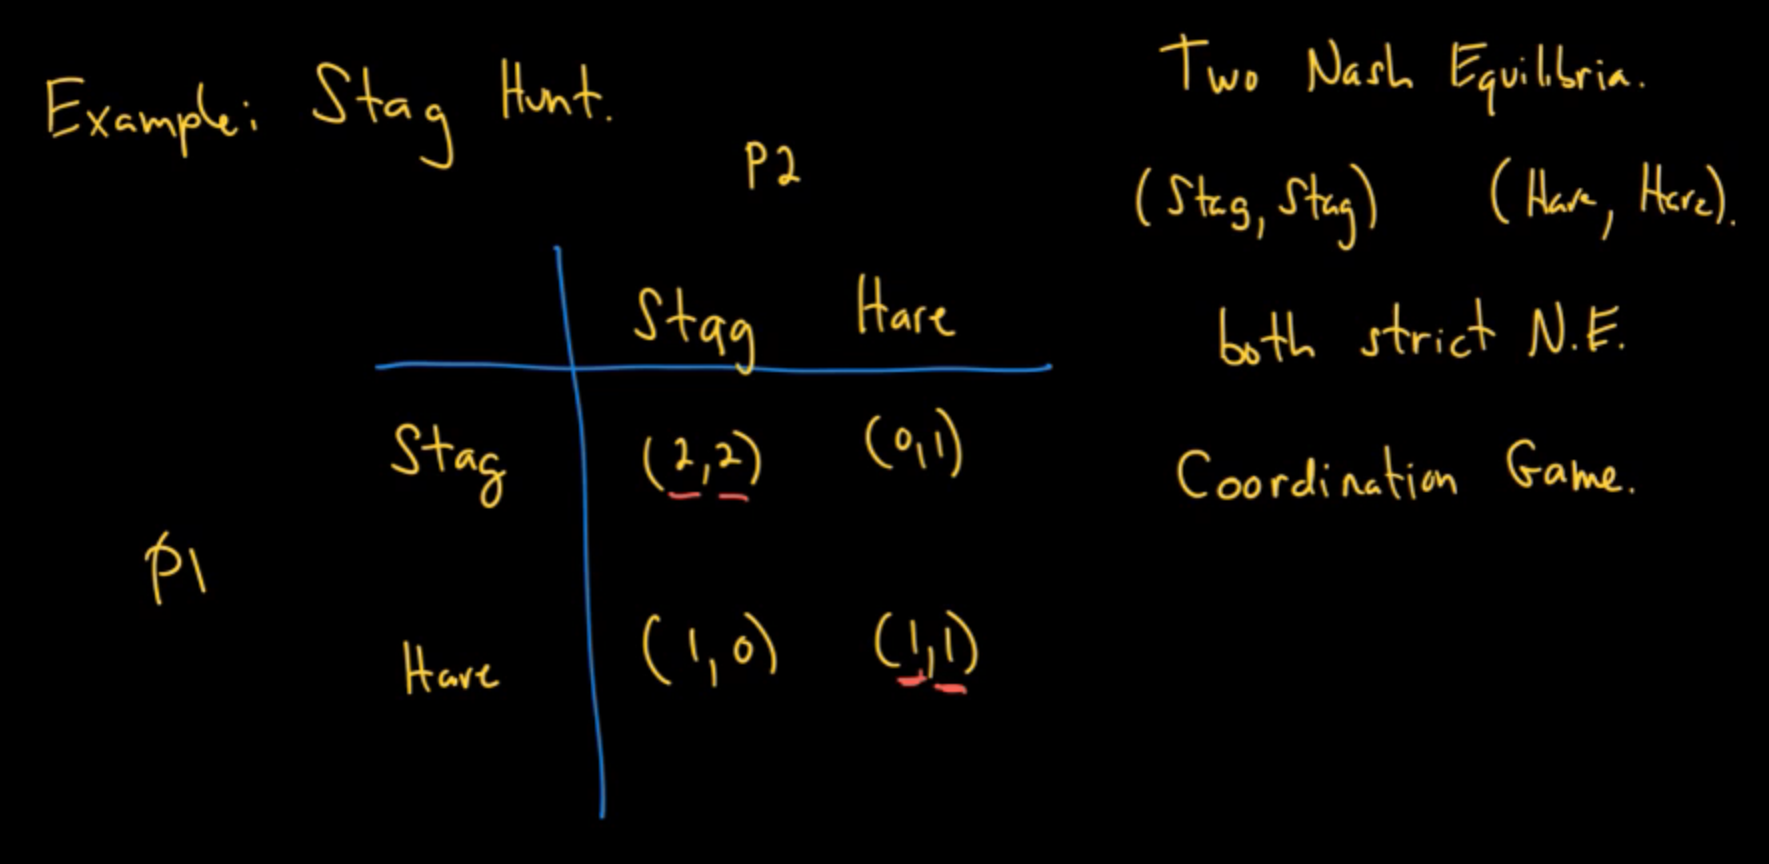 Example: Stag Hunt.
P2
Stag Hare
Stag (2,2) (0,1)
P1
Hare (1,0) (1,1)
Two Nash Equilibria.
(Stag, Stag) (Hare, Hare).
both strict N.E.
Coordination Game.